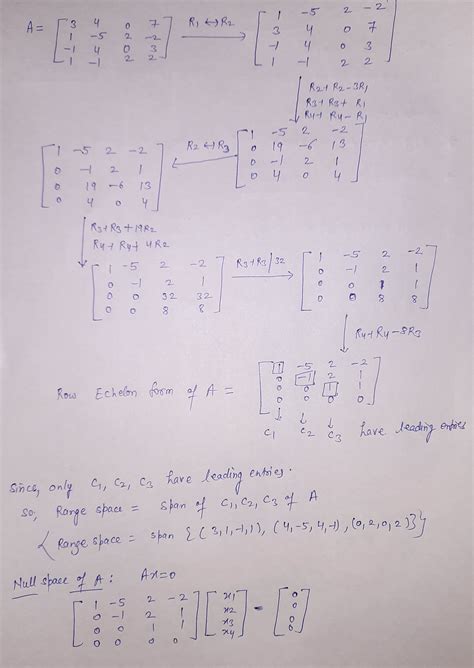 A = [ 3 4 0 7 ; 1 -5 2 -2 ; -1 4 0 3 ; 1 -1 2 2 ] R1 ↔ R2 → [ 1 -5 2 -2 ; 3 4 0 7 ; -1 4 0 3 ; 1 -1 2 2 ]
↓ R2 + R2 - 3R1
R3 + R3 + R1
R4 + R4 - R1
[ 1 -5 2 -2 ; 0 -1 2 1 ; 0 19 -6 13 ; 0 4 0 4 ] ← R2 ↔ R3 [ 1 -5 2 -2 ; 0 19 -6 13 ; 0 -1 2 1 ; 0 4 0 4 ]
↓ R3 + R3 + 19R2
R4 + R4 + 4R2
[ 1 -5 2 -2 ; 0 -1 2 1 ; 0 0 32 32 ; 0 0 8 8 ] R3 + R3/32 → [ 1 -5 2 -2 ; 0 -1 2 1 ; 0 0 1 1 ; 0 0 8 8 ]
↓ R4 + R4 - 8R3
Row Echelon form of A = [ 1 -5 2 -2 ; 0 -1 2 1 ; 0 0 1 1 ; 0 0 0 0 ]
↓ ↓ ↓
C1 C2 C3 have leading entries
Since, only C1, C2, C3 have leading entries.
So, Range space = span of C1, C2, C3 of A
{ Range space = span { (3,1,-1,1), (4,-5,4,-1), (0,2,0,2) } }
Null space of A : Ax=0
[ 1 -5 2 -2 ; 0 -1 2 1 ; 0 0 1 1 ; 0 0 0 0 ] [ x1 ; x2 ; x3 ; x4 ] = [ 0 ; 0 ; 0 ; 0 ]